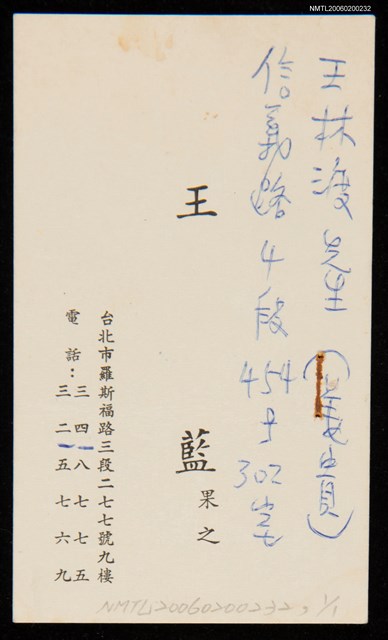 NMTL20060200232
王林渡先生(議員)
信義路4段
454号
302室
王藍
果之
台北市羅斯福路三段二七七號九樓
電話:三四一八七七五
三二一五七六九
NMTL20060200232, 1/1